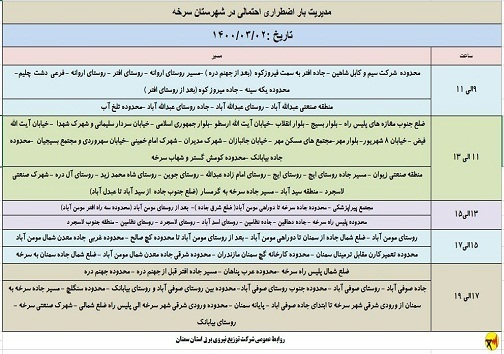 مدیریت بار اضطراری احتمالی در شهرستان سرخه
تاریخ :۱۴۰۰/۰۳/۰۲
ساعت
مسیر
۹الی ۱۱
محدوده شرکت سیم و کابل شاهین – جاده افتر به سمت فیروزکوه (بعد از جهنم دره) –مسیر روستای اروانه – روستای افتر – روستای اروانه – فرعی دشت چلیم–
محدوده یکه سینه – جاده فیروز کوه (بعد از روستای افتر)
منطقه صنعتی عبدالله آباد – روستای عبدالله آباد – جاده روستای عبدالله آباد –محدوده تلخ آب
۱۱ الی ۱۳
ضلع جنوب مغازه های پلیس راه – بلوار بسیج – بلوار انقلاب –خیابان آیت الله ارسطو –بلوار جمهوری اسلامی – خیابان سردار سلیمانی و شهرک شهدا – خیابان آیت الله
فیض – خیابان ۸ شهریور– بلوار مهر– مجتمع های مسکن مهر – خیابان جانبازان – شهرک مدیران – شهرک امام خمینی –خیابان سهروردی و مجتمع بسیجیان –محدوده
جاده بیابانک –محدوده کوشم گستر و شهاب سرخه
منطقه صنعتی زیوان – مسیر جاده روستای ایج – روستای ایج – روستای امام زاده عبدالله – روستای جوین – روستای شاه محمد زید – روستای آل دره – شهرک صنعتی
لاسجرد – منطقه سید آباد – مسیر جاده سرخه به گرمسار (ضلع جنوب جاده از سید آباد تا عبدل آباد)
۱۳الی۱۵
مجتمع پیرپزشکی – محدوده جاده سرخه تا دوراهی مومن آباد(ضلع شرق جاده )– بعد از روستای مومن آباد (محدوده سه راه افتر مومن آباد)
محدوده پلیس راه سرخه – جاده دهاقین – جاده نظامین – روستای اسد آباد – روستای لاسجرد – روستای نظامین – منطقه جنوب لاسجرد
۱۵الی۱۷
روستای مومن آباد – ضلع شمال جاده از سمنان تا دوراهی مومن آباد – بعد از روستای مومن آباد تا محدوده گچ صالح – محدوده غربی جاده معدن شمال مومن آباد
محدوده تعمیرکارن مقابل ترمینال سمنان – محدوده کارخانه گچ سمنان مازندران – محدوده شرقی جاده معدن شمال مومن آباد – ضلع شمال جاده سمنان به سرخه
۱۷الی ۱۹
ضلع شمال پلیس راه سرخه –محدوده عرب پناهان – مسیر جاده افتر قبل از جهنم دره – محدوده جهنم دره
جاده صوفی آباد – روستای صوفی آباد – محدوده جنوب روستای صوفی آباد – محدوده بین روستای صوفی آباد و روستای بیابانک – محدوده سنگلج – مسیر جاده سرخه به
سمنان از ورودی شرقی شهر سرخه تا ابتدای جاده صوفی اباد – پایانه سمنان – محدوده ورودی شرقی شهر سرخه الی پلیس راه ضلع شمالی – شهرک صنعتی سرخه –
روستای بیابانک
روابط عمومی شرکت توزیع نیروی برق استان سمنان